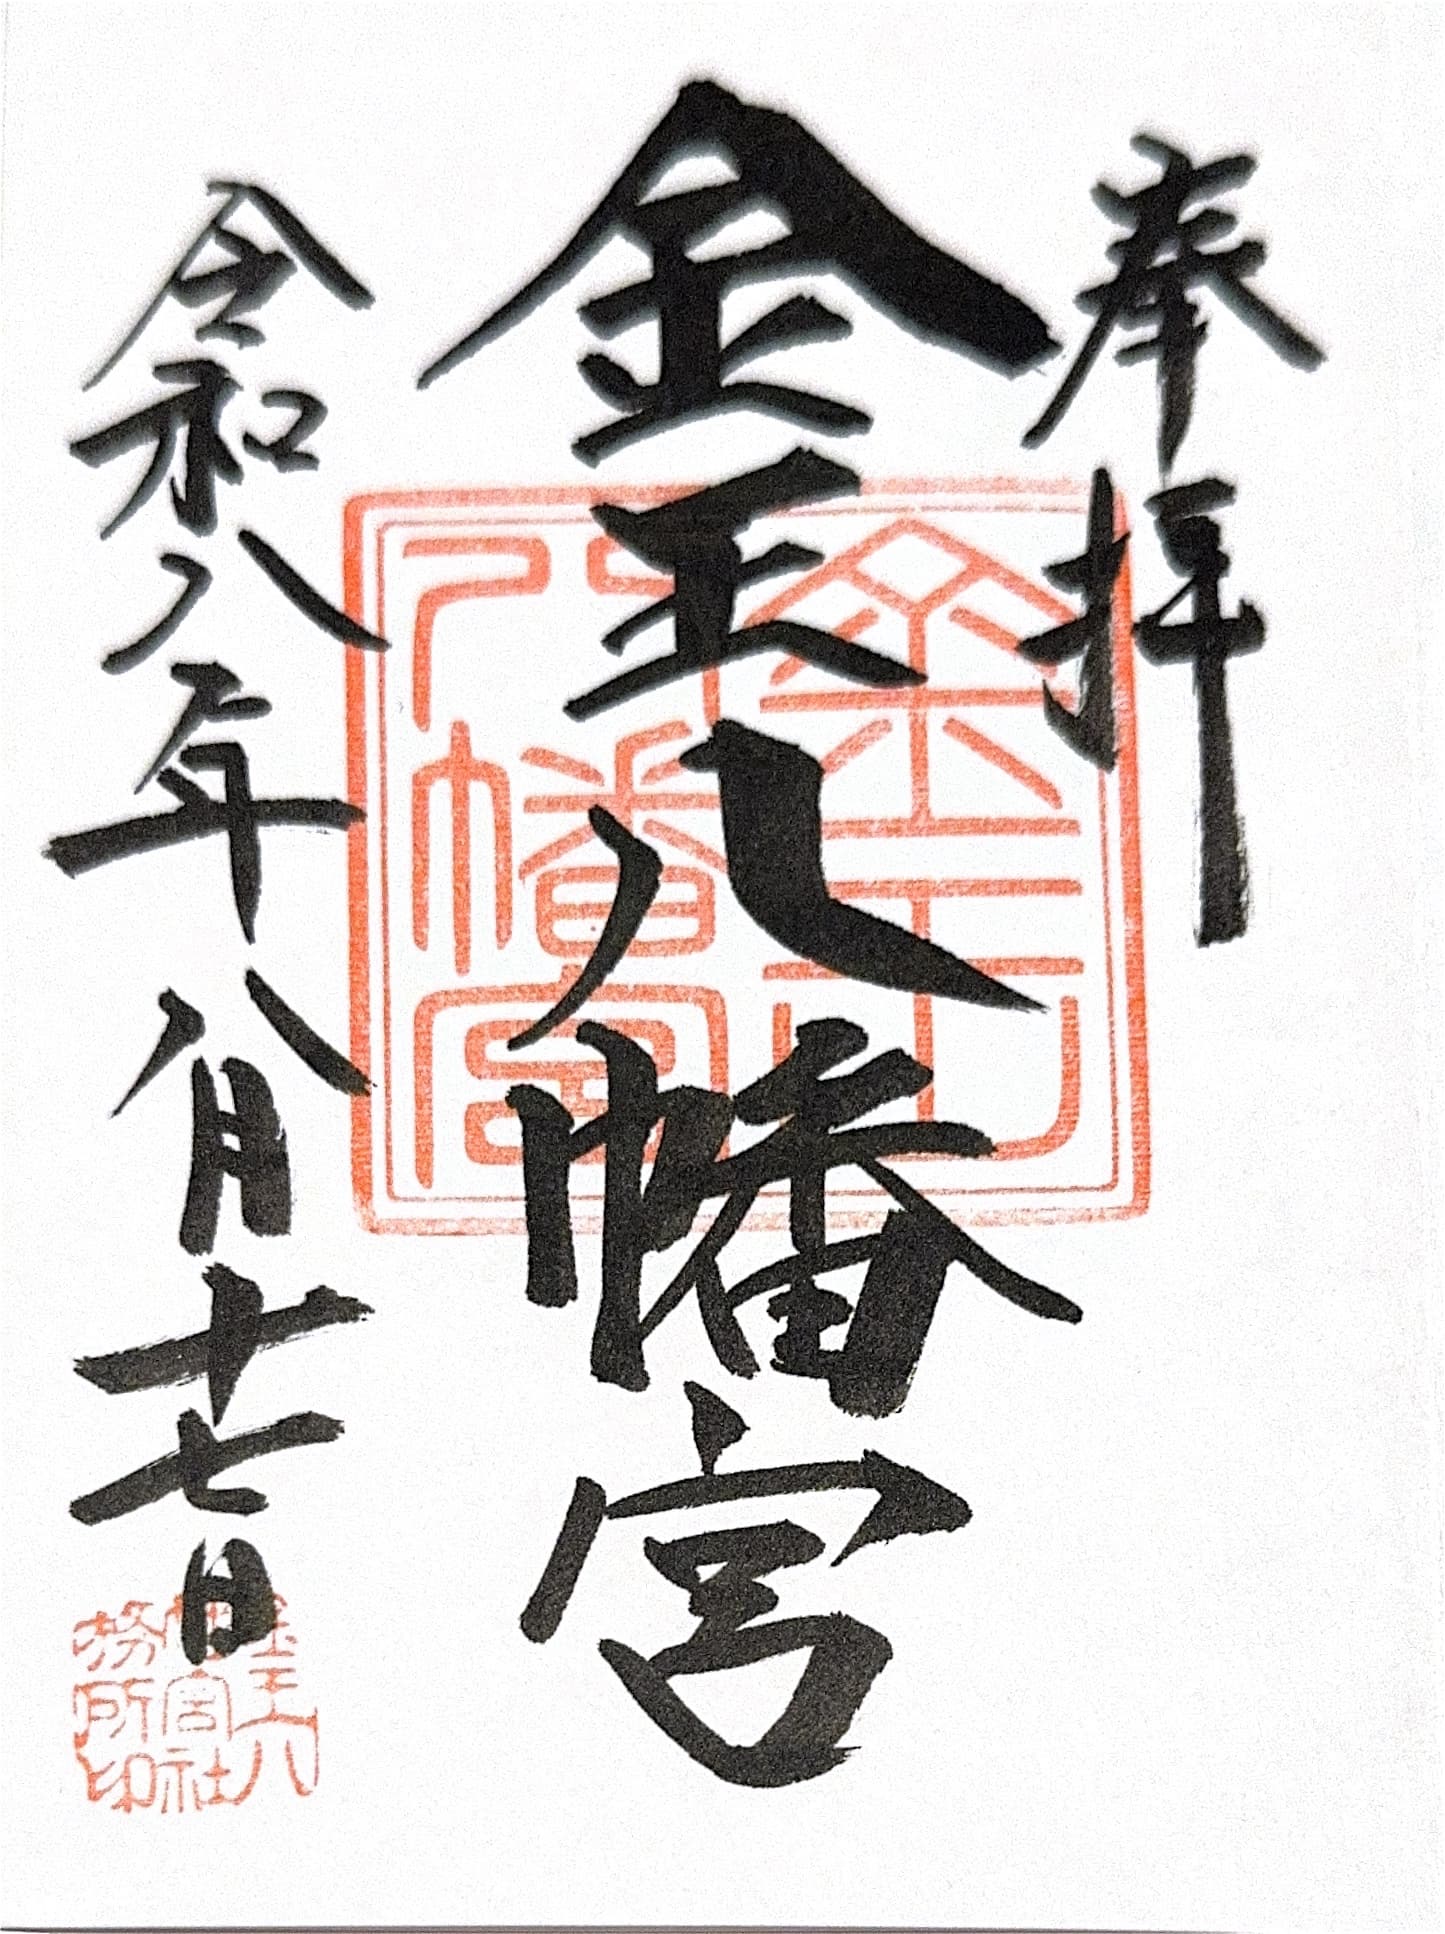 奉拝
金王八幡宮
令和八年八月十七日
金王
八幡宮
金王八
幡宮社
務所印